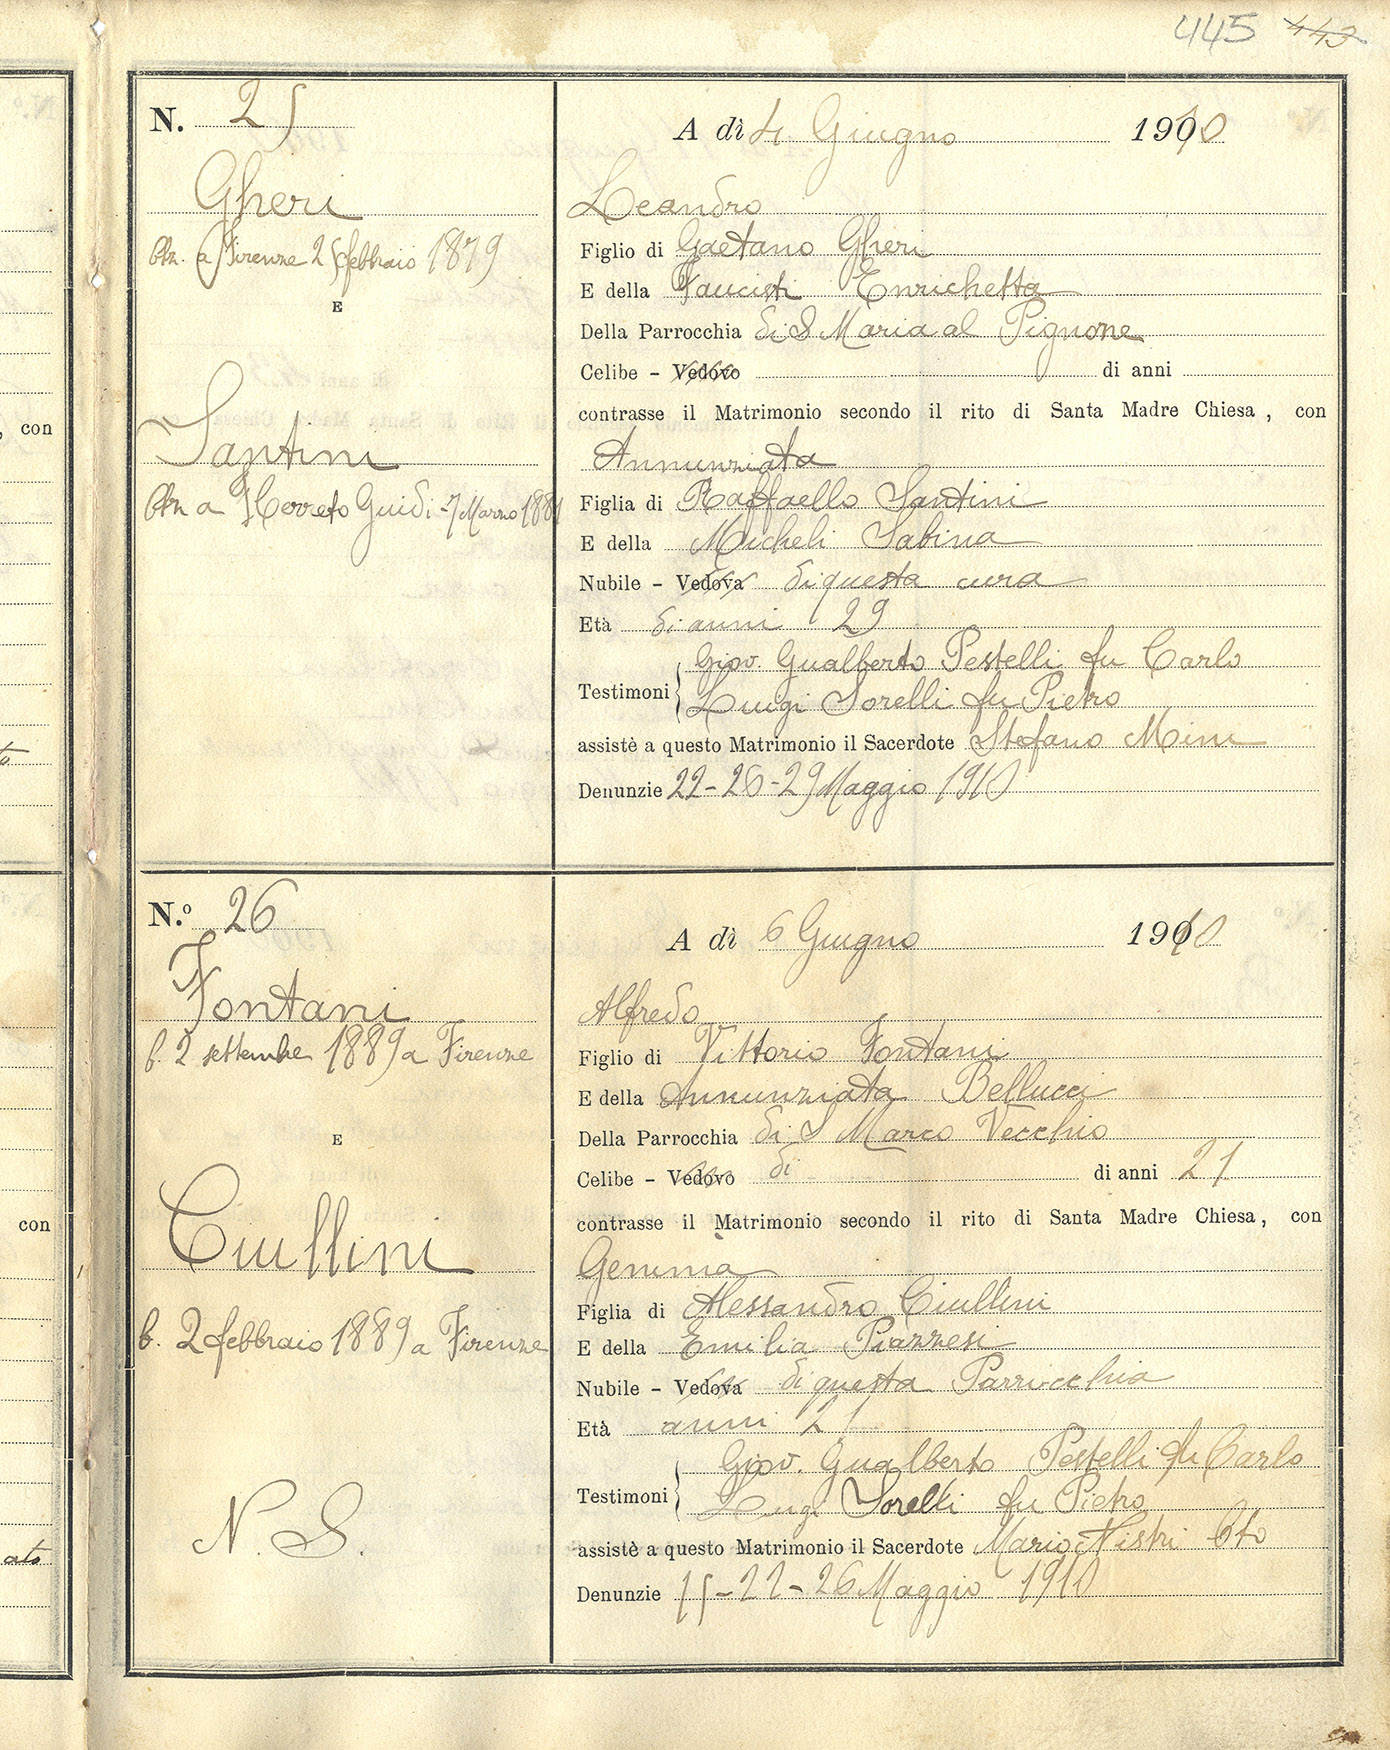 445 443
N. 25
A dì 4 Giugno 1910
Gheri
Leandro
Btz. a Firenze 25 febbraio 1879
Figlio di Gaetano Gheri
E
E della Faucisti Enrichetta
Della Parrocchia di S Maria al Pignone
Celibe - Vedovo di anni
contrasse il Matrimonio secondo il rito di Santa Madre Chiesa, con
, con
Santini
Annunziata
Btz a Cerreto Guidi - 7 Marzo 1881
Figlia di Raffaello Santini
E della Micheli Sabina
Nubile - Vedova di questa cura
Età di anni 29
Testimoni Giov. Gualberto Pestelli fu Carlo
Luigi Sorelli fu Pietro
assistè a questo Matrimonio il Sacerdote Stefano Mini
Denunzie 22 - 26 - 29 Maggio 1910
N.º 26
A dì 6 Giugno 1910
Fontani
Alfredo
b. 2 settembre 1889 a Firenze
Figlio di Vittorio Fontani
E della Annunziata Bellucci
E
Della Parrocchia di S Marco Vecchio
Celibe - Vedovo di di anni 21
contrasse il Matrimonio secondo il rito di Santa Madre Chiesa, con
con
Ciullini
Gemma
Figlia di Alessandro Ciullini
b. 2 febbraio 1889 a Firenze
E della Emilia Piazzesi
Nubile - Vedova di questa Parrocchia
Età anni 21
Testimoni Giov. Gualberto Pestelli fu Carlo
Luigi Sorelli fu Pietro
N. S.
assistè a questo Matrimonio il Sacerdote Mario Nistri
ato
Denunzie 15 - 22 - 26 Maggio 1910